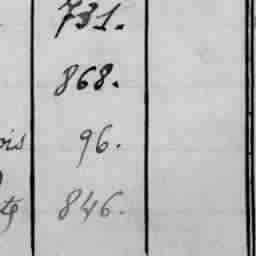 731.
868.
ois 96.
846.